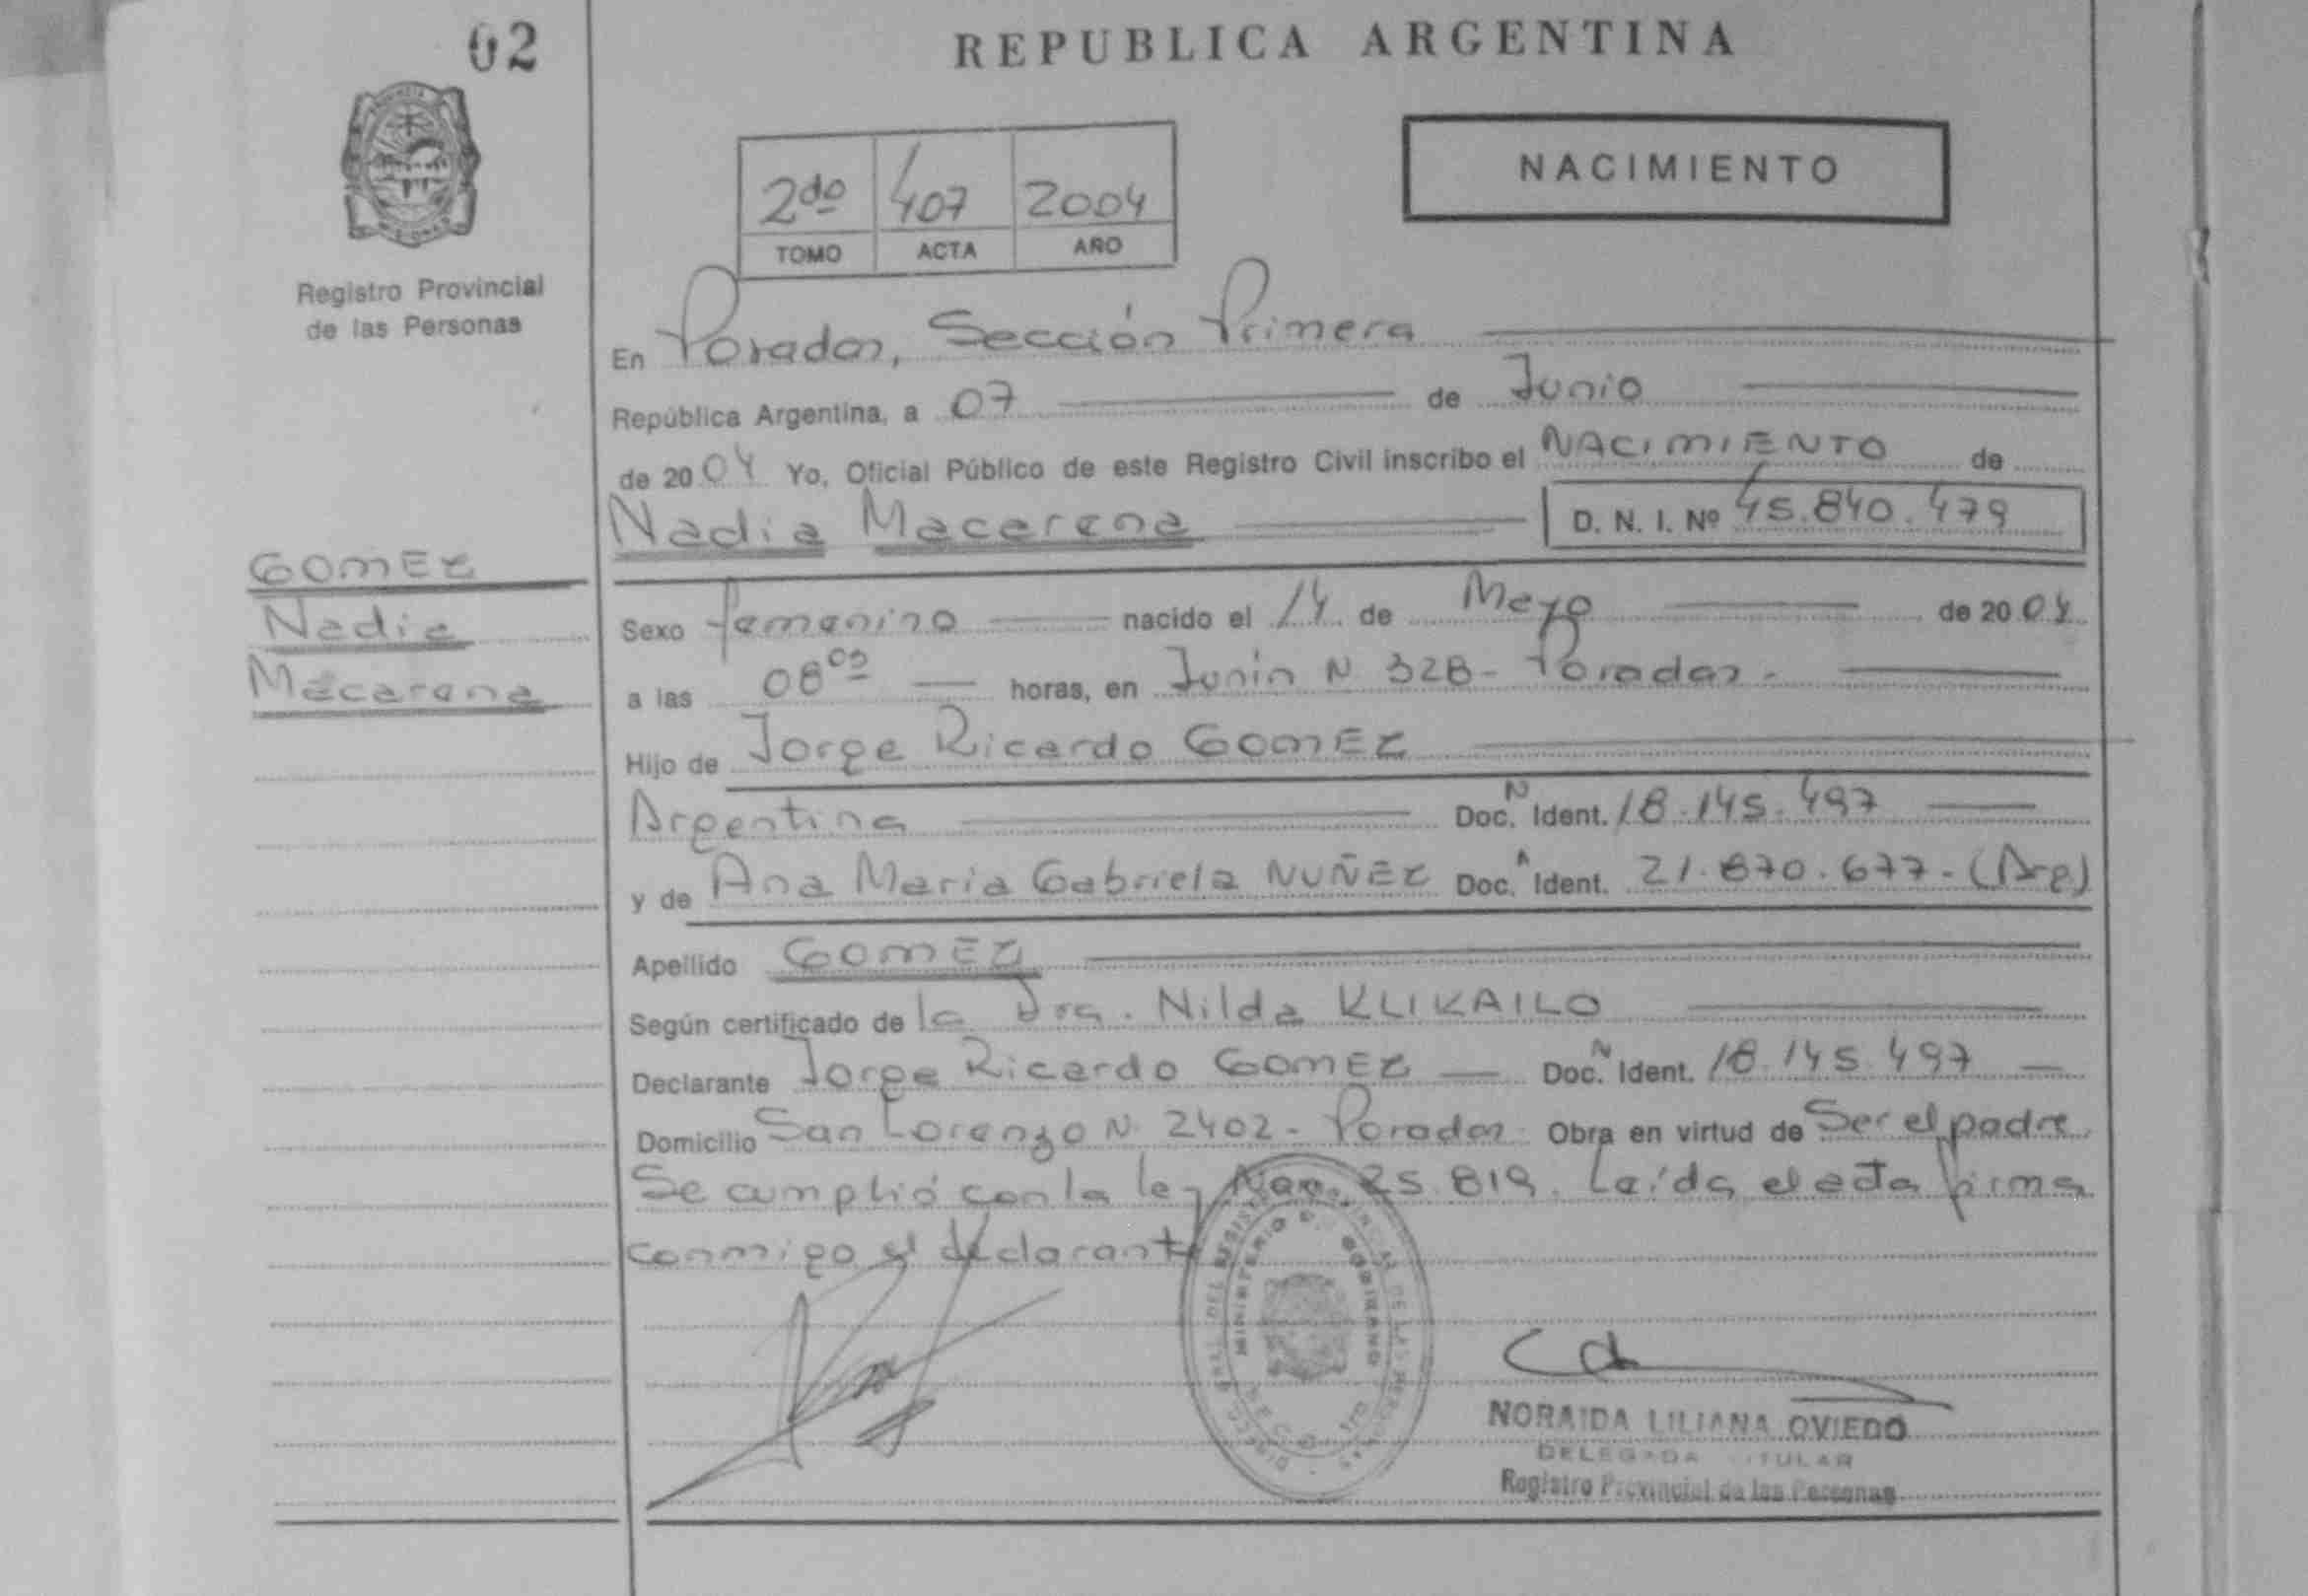 02
REPUBLICA ARGENTINA
2do 407 2004
TOMO ACTA AÑO
NACIMIENTO
Registro Provincial
de las Personas
En Posadas, Sección Primera
República Argentina, a 07 de Junio
de 2004 Yo, Oficial Público de este Registro Civil inscribo el NACIMIENTO de
Nadia Macarena D. N. I. Nº 45.840.479
GOMEZ
Nadia
Macarena
Sexo femenino nacido el 14 de Mayo de 2004
a las 08 horas, en Junin N 328 - Posadas -
Hijo de Jorge Ricardo GOMEZ
Argentina Doc. N Ident. 18.145.497
y de Ana Maria Gabriela NUÑEZ Doc. Ident. 21.870.677 - (Arg)
Apellido GOMEZ
Según certificado de la Dra. Nilda KLIKAILO
Declarante Jorge Ricardo GOMEZ Doc. N Ident. 18.145.497
Domicilio San Lorenzo N 2402 - Posadas Obra en virtud de Ser el padre.
Se cumplió con la ley Nac. 25.819. Leída el acta firma
conmigo el declarante
MINISTERIO DE GOBIERNO
NORAIDA LILIANA OVIEDO
DELEGADA TITULAR
Registro Provincial de las Personas